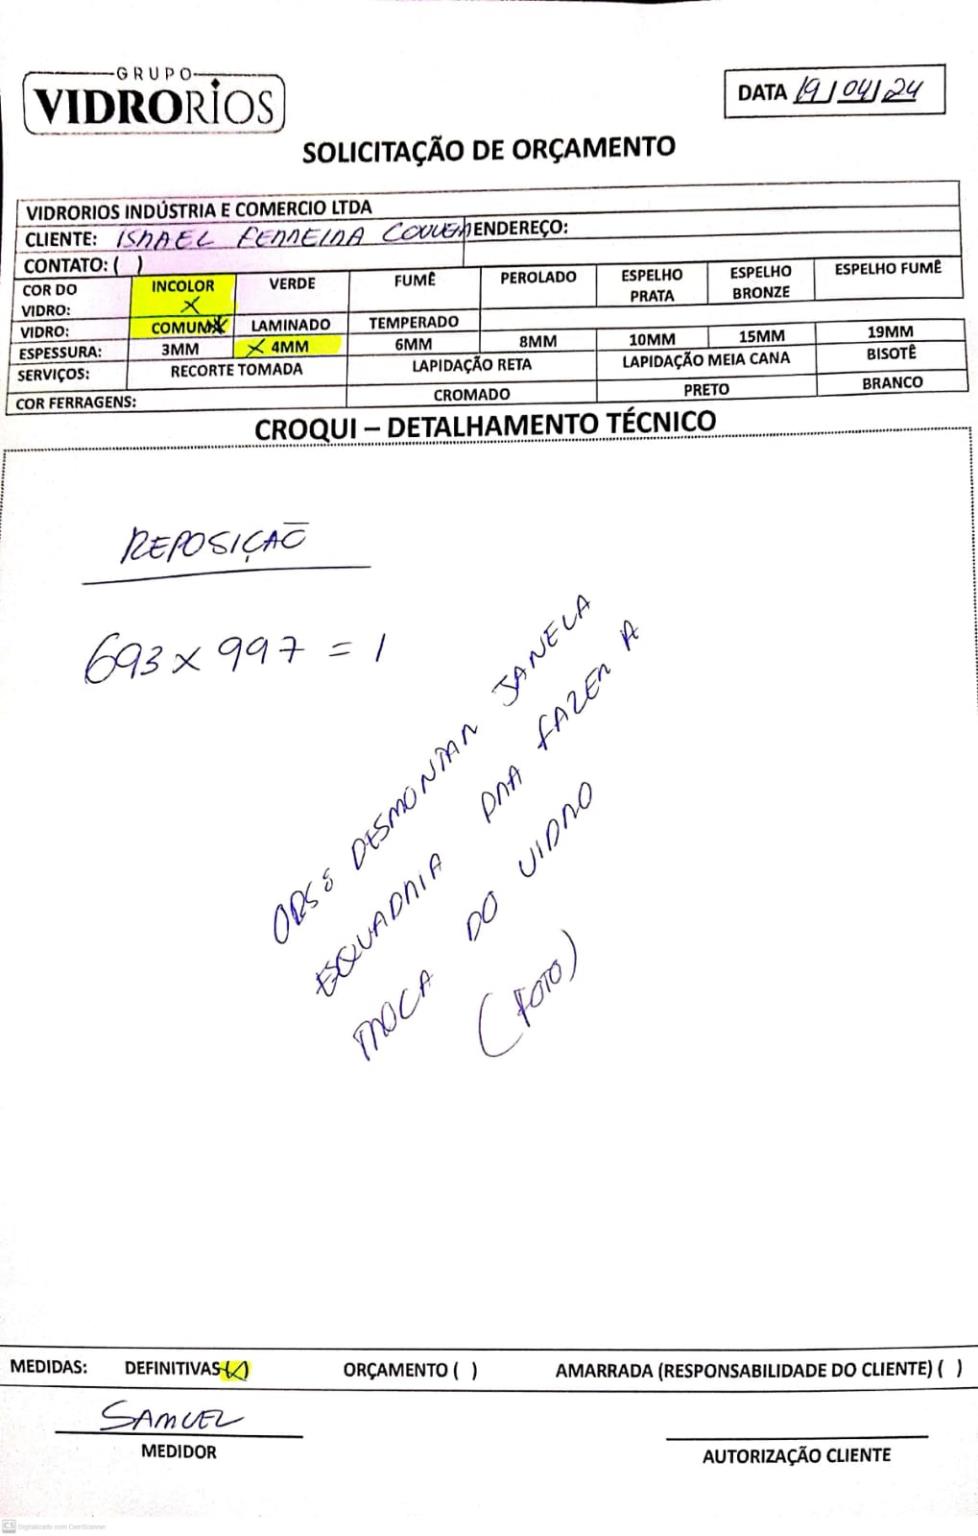 GRUPO
VIDRORIOS
DATA 19/04/24
SOLICITAÇÃO DE ORÇAMENTO
VIDRORIOS INDÚSTRIA E COMERCIO LTDA
CLIENTE: ISRAEL FERREIRA ENDEREÇO:
CONTATO: ( )
COR DO VIDRO: INCOLOR X VERDE FUMÊ PEROLADO ESPELHO PRATA ESPELHO BRONZE ESPELHO FUMÊ
VIDRO: COMUM X LAMINADO TEMPERADO
ESPESSURA: 3MM X 4MM 6MM 8MM 10MM 15MM 19MM
SERVIÇOS: RECORTE TOMADA LAPIDAÇÃO RETA LAPIDAÇÃO MEIA CANA BISOTÊ
COR FERRAGENS: CROMADO PRETO BRANCO
CROQUI – DETALHAMENTO TÉCNICO
REPOSIÇÃO
693 x 997 = 1
OBS: DESMONTAR JANELA
ESQUADRIA PRA FAZER A
TROCA DO VIDRO
(FOTO)
MEDIDAS: DEFINITIVAS (X) ORÇAMENTO ( ) AMARRADA (RESPONSABILIDADE DO CLIENTE) ( )
SAMUEL
MEDIDOR
AUTORIZAÇÃO CLIENTE
CS Digitalizado com CamScanner